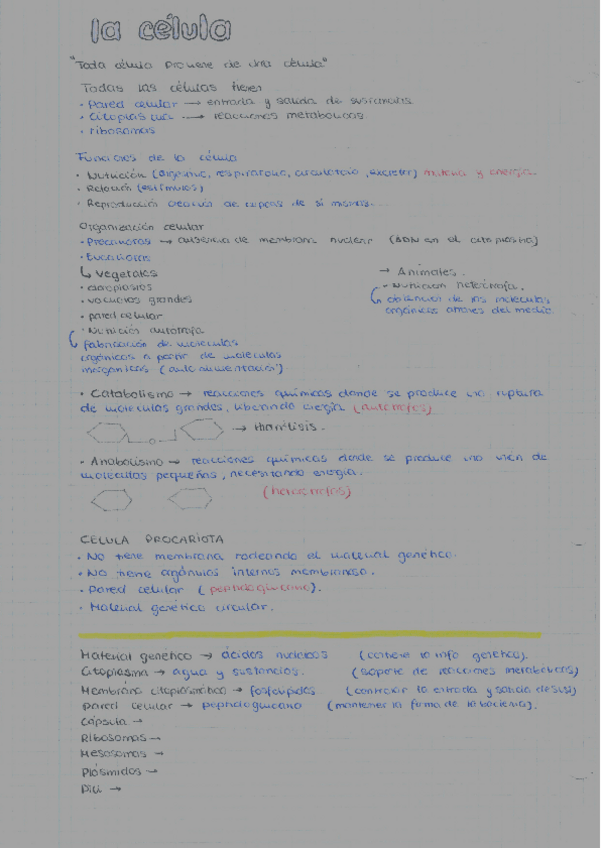 la célula
"Toda célula proviene de otra célula"
Todas las células tienen
· Pared celular → entrada y salida de sustancias
· Citoplasma → reacciones metabólicas
· ribosomas
Funciones de la célula
· Nutrición (digestivo, respiratorio, circulatorio, excretor) materia y energía.
· Relación (estímulos)
· Reproducción creación de copias de sí mismos...
Organización celular
· Procariotas → ausencia de membrana nuclear (ADN en el citoplasma)
· Eucariotas
↳ vegetales
· cloroplastos
· vacuolas grandes
· pared celular
· Nutrición autótrofa
fabricación de moléculas
orgánicas a partir de moléculas
inorgánicas
→ Animales.
· Nutrición heterótrofa.
obtención de las moléculas
orgánicas através del medio.
· Catabolismo → reacciones químicas donde se produce una ruptura
de moléculas grandes, liberando energía (autótrofos)
→
· Anabolismo → reacciones químicas donde se produce una unión de
moléculas pequeñas, necesitando energía.
(heterótrofos)
CÉLULA PROCARIOTA
· No tiene membrana rodeando el material genético.
· No tiene orgánulos internos membranoso.
· Pared celular (peptidoglucano).
· Material genético circular.
Material genético → ácidos nucleicos (contiene la info genética).
Citoplasma → agua y sustancias. (soporte de reacciones metabólicas)
Membrana citoplasmática → fosfolípidos (controlar la entrada y salida de sust)
pared celular → peptidoglucano (mantener la forma de la bacteria).
Cápsula →
Ribosomas →
Mesosomas →
Plásmidos →
Pili →